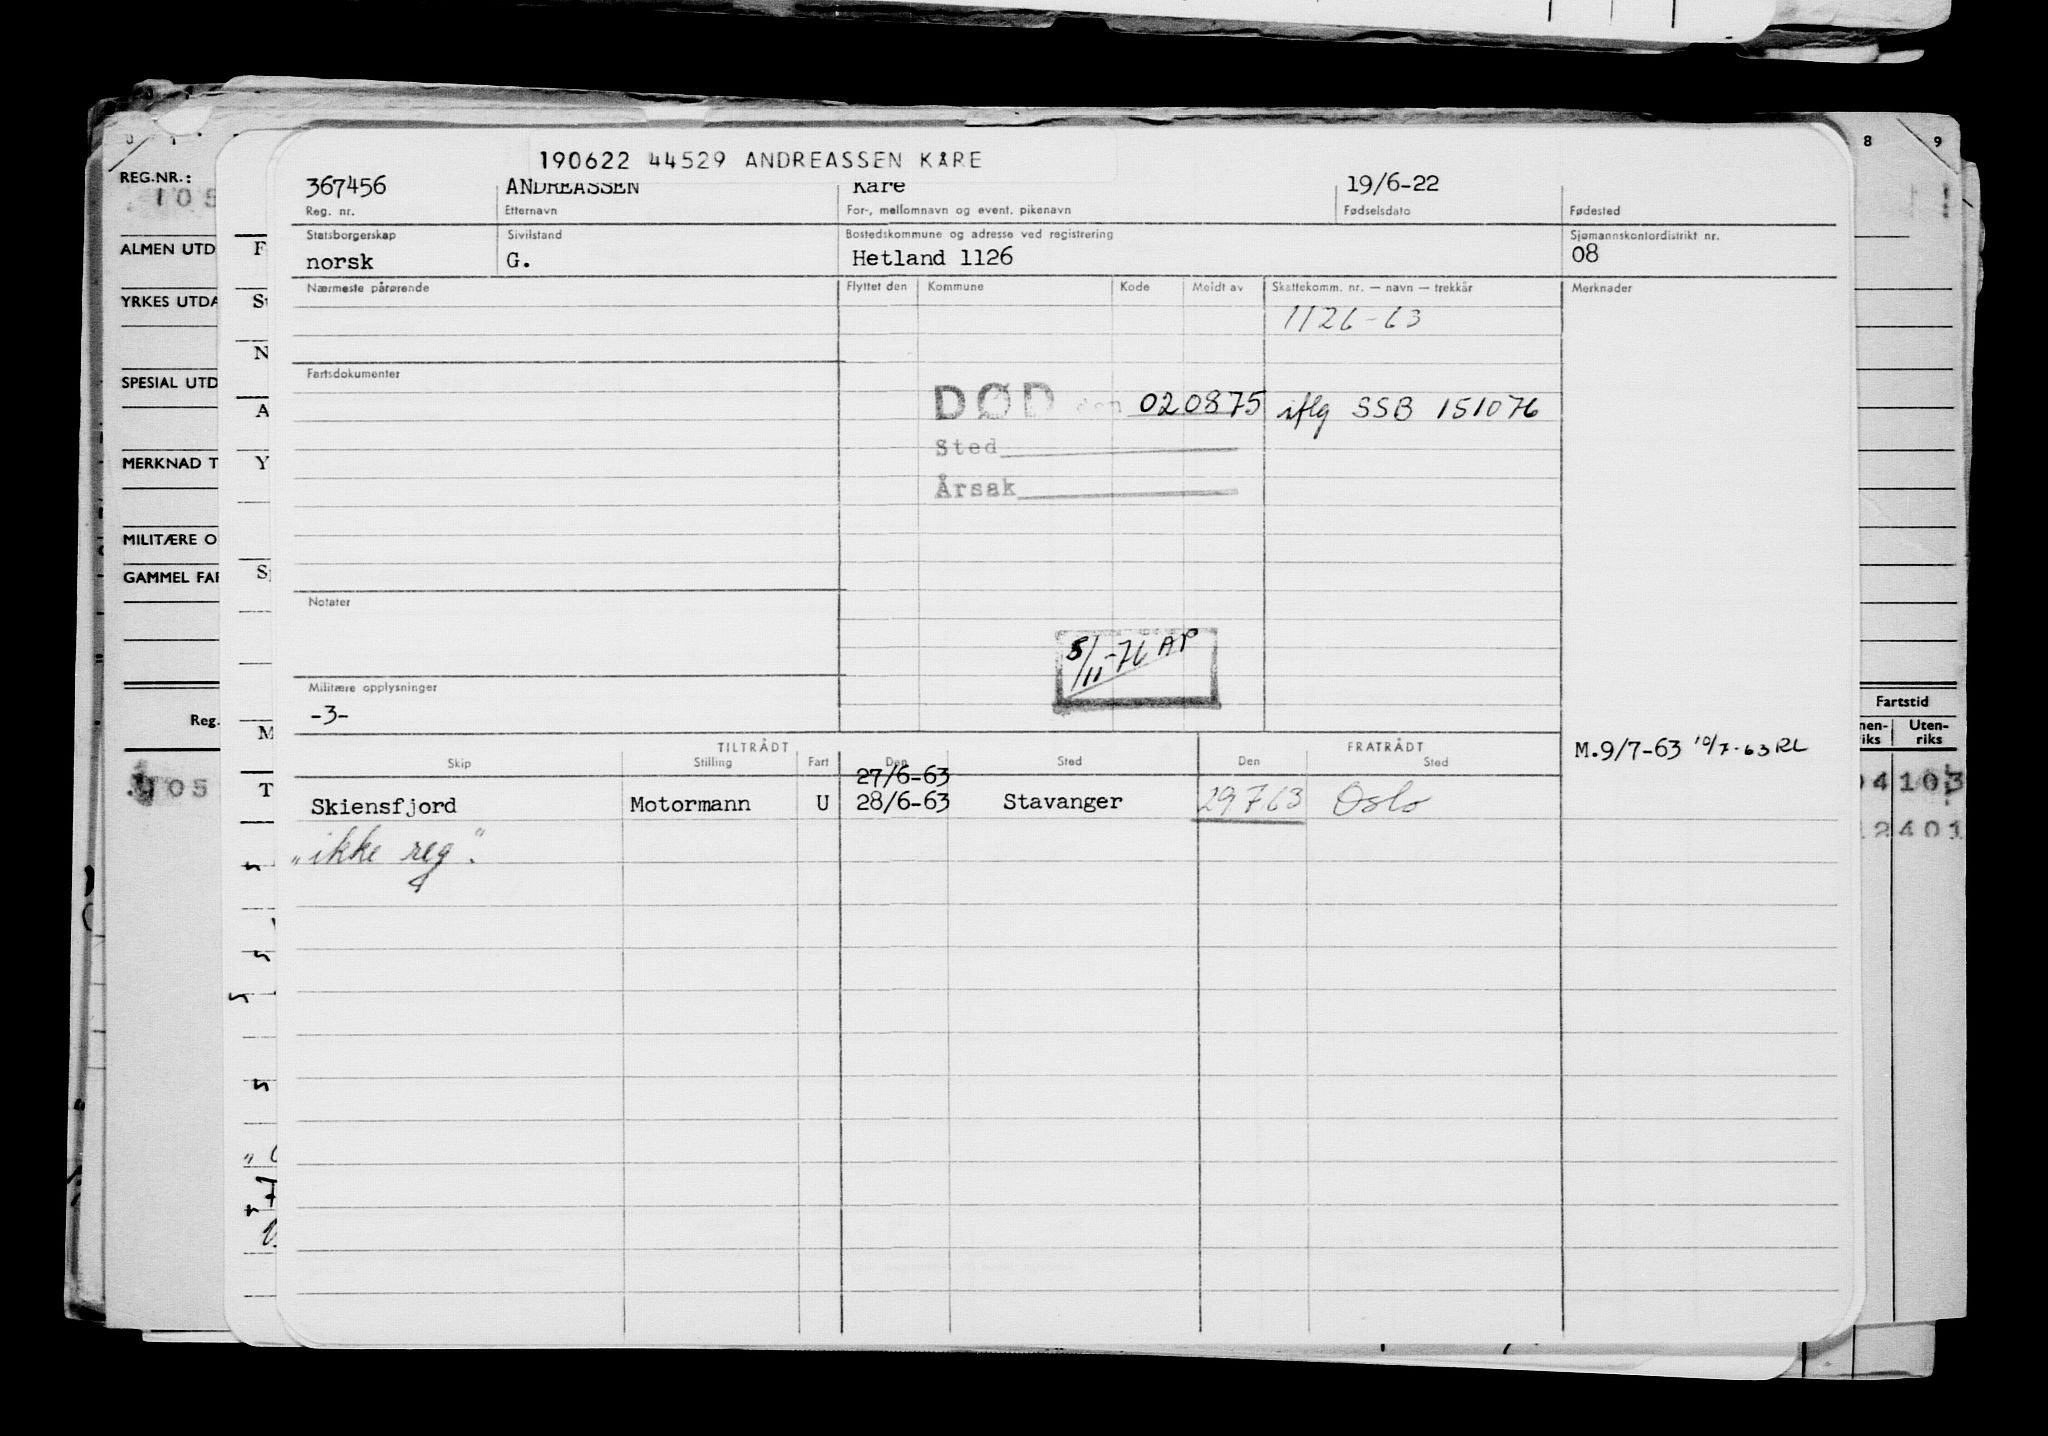 190622 44529 ANDREASSEN KÅRE
367456 ANDREASSEN Kåre 19/6-22
Reg. nr. Etternavn For-, mellomnavn og event. pikenavn Fødselsdato Fødested
Statsborgerskap Sivilstand Bostedskommune og adresse ved registrering Sjømannskontordistrikt nr.
norsk G. Hetland 1126 08
Nærmeste pårørende Flyttet den Kommune Kode Meldt av Skattekomm. nr. — navn — trekkår Merknader
1126-63
Fartsdokumenter
DØD den 020875 iflg SSB 151076
Sted
Årsak
Notater
5/11-76 AP
Militære opplysninger
-3-
TILTRÅDT FRATRÅDT
M.9/7-63 10/7-63 RL
Skip Stilling Fart Den Sted Den Sted
27/6-63
Skiensfjord Motormann U 28/6-63 Stavanger 29763 Oslo
"ikke reg".
8 9
REG.NR.:
105
ALMEN UTD
YRKES UTDA
SPESIAL UTD
MERKNAD T
MILITÆRE O
GAMMEL FAR
Reg.
F
N
A
Y
M
T
Fartstid
nen- Uten-
iks riks
04 103
12401